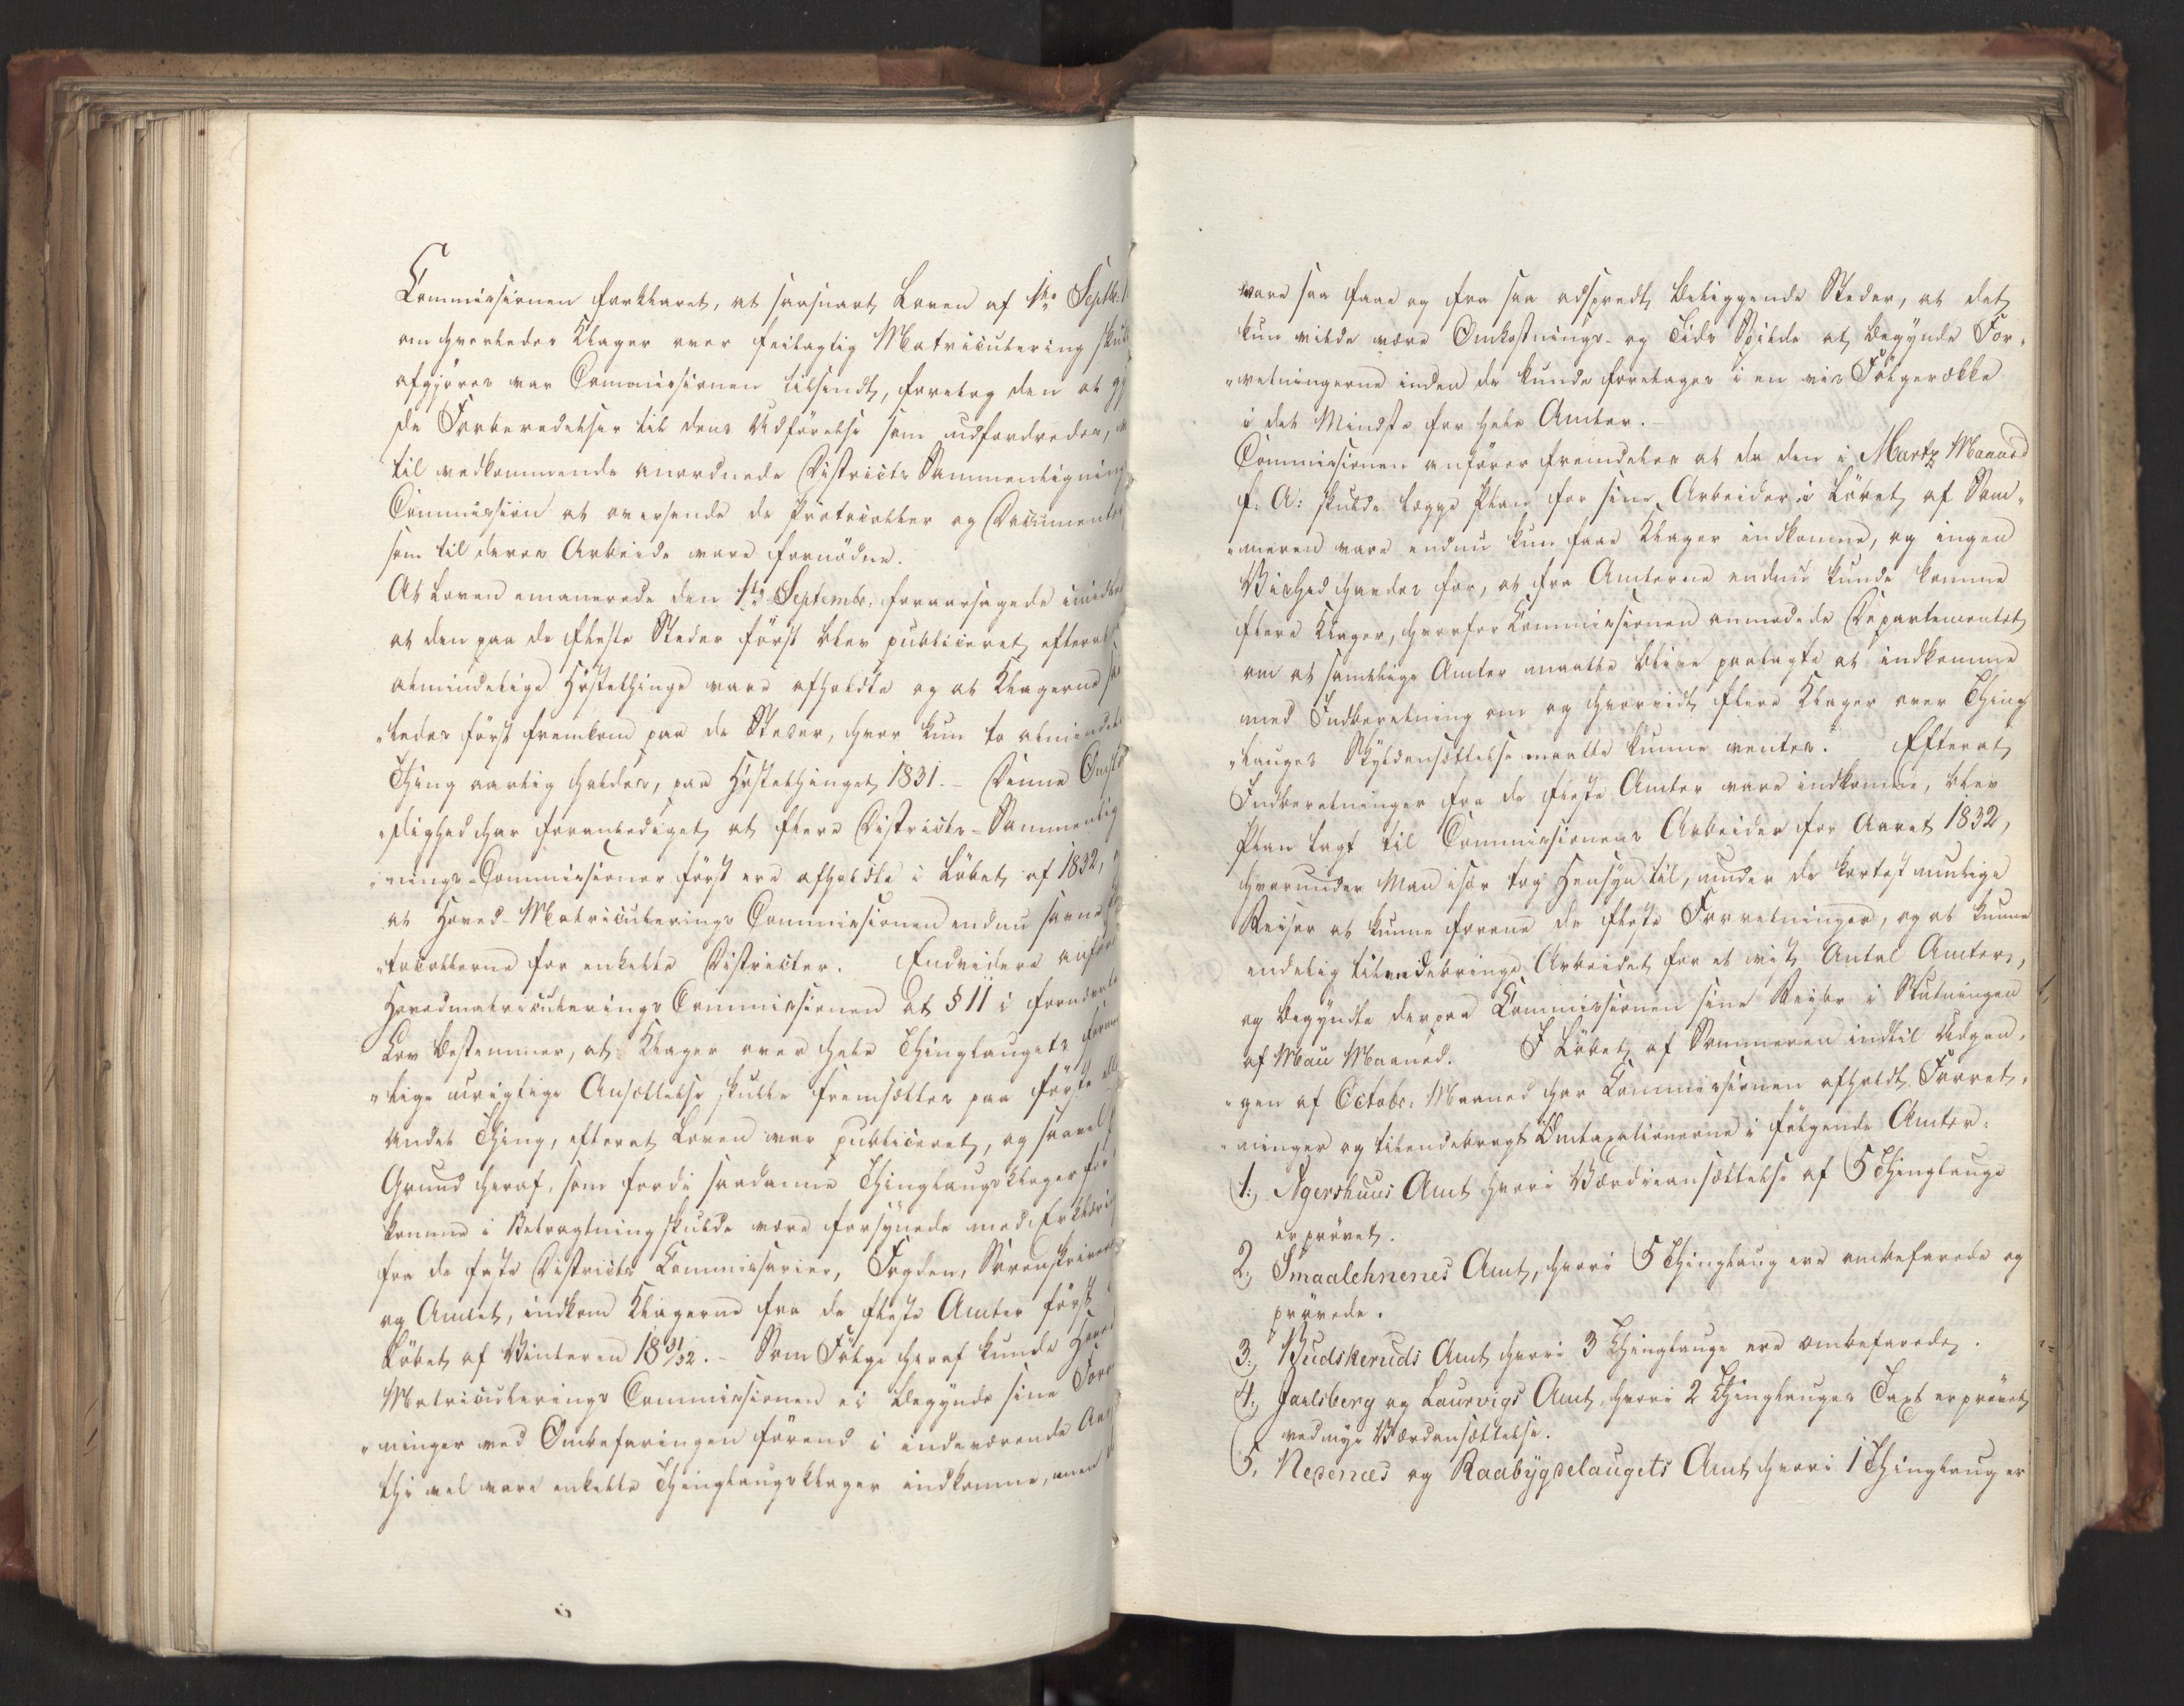 Commissionen forklaret, at saasnart Loven af 1ste Septbr.
om hvorledes Klager over feilagtig Matriculering
afgjøres var Commissionen tilsendt, foretog den at
de Forberedelser til dens Udførelse som udfordredes,
til vedkommende anordnede Districts Sammenlignings
Commission at oversende de Protocoller og Documenter
som til deres Arbeide vare fornødne.
At Loven emanerede den 1ste Septembr. foraarsagede imidlertid
at den paa de fleste Steder først blev publiceret, efterat
almindelige Høstethinge vare afholdte og at Klagerne
„ledes først fremkom paa de Steder, hvor kun to almindelige
Thing aarlig holdes, paa Høstethinget 1831. – Denne
„dighed har foranlediget, at flere Districts-Sammenlig
„nings-Commissioner først ere afholdte i Løbet af 1832,
at Hoved-Matriculerings Commissionen endnu savner
„tocollerne for enkelte Districter. Endvidere anfører
Hovedmatriculerings Commissionen at § 11 i fornævnte
Lov bestemmer, at Klager over hele Thinglaugets
„lige urigtige Ansættelse skulle fremsættes paa første
andet Thing, efterat Loven var publiceret, og saavel
Grund heraf, som fordi saadanne Thinglaugsklager for
komme i Betragtning skulde være forsynede med Erklæring
fra de faste Districts Commissarier, Fogden, Sorenskriveren
og Amtet, indkom Klagerne fra de fleste Amter først
Løbet af Vinteren 18 31/32. – Som Følge heraf kunde Hoved
Matriculerings Commissionen ei begynde sine
„ninger med Ombefaringen førend i indeværende
thi vel vare enkelte Thinglaugsklager indkomne, men
vare saa faae og fra saa adspredt beliggende Steder, at det
kun vilde være Omkostnings- og Tids Spilde at begynde For„
„retningerne inden de kunde foretages i en vis Følgerække
i det Mindste for hele Amter.
Commissionen anfører fremdeles at da den i Martz Maaned
f: A: skulde lægge Plan for sine Arbeider i Løbet af Som„
„meren vare endnu kun faae Klager indkomne, og ingen
Vished havdes for, at fra Amterne endnu kunde komme
flere Klager, hvorfor Commissionen anmodede Departementet
om at samtlige Amter maatte blive paalagte at indkomme
med Indberetning om og hvorvidt flere Klager over Thing
„lauges Skyldansættelse maatte kunne ventes. Efterat
Indberetninger fra de fleste Amter vare indkomne, blev
Plan lagt til Commissionens Arbeider for Aaret 1832,
hvorunder Man især tog Hensyn til, under de kortest mulige
Reiser at kunne forene de fleste Forretninger, og at kunne
endelig tilendebringe Arbeidet for et vist Antal Amter,
og begyndte derpaa Commissionen sine Reiser i Slutningen
af Maii Maaned. I Løbet af Sommeren indtil Udgan„
„gen af Octobr: Maaned har Commissionen afholdt Forret„
„ninger og tilendebragt Omtaxationerne i følgende Amter:
1., Agershuus Amt hvori Værdieansættelse af 5 Thinglauge
er prøvet.
2., Smaalehnenes Amt, hvori 5 Thinglaug ere ombefarede og
prøvede.
3., Budskeruds Amt hvori 3 Thinglauge ere ombefarede.
4., Jarlsberg og Laurvigs Amt, hvori 2 Thinglauges Taxt er prøvet
ved nye Værdansættelse.
5, Nedenæs og Raabygdelaugets Amt hvori 1 Thinglaug er